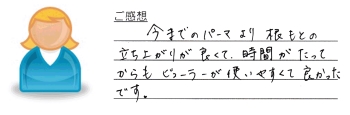 ご感想
今までのパーマより根もとの
立ち上がりが良くて、時間がたって
からもビューラーが使いやすくて良かった
です。